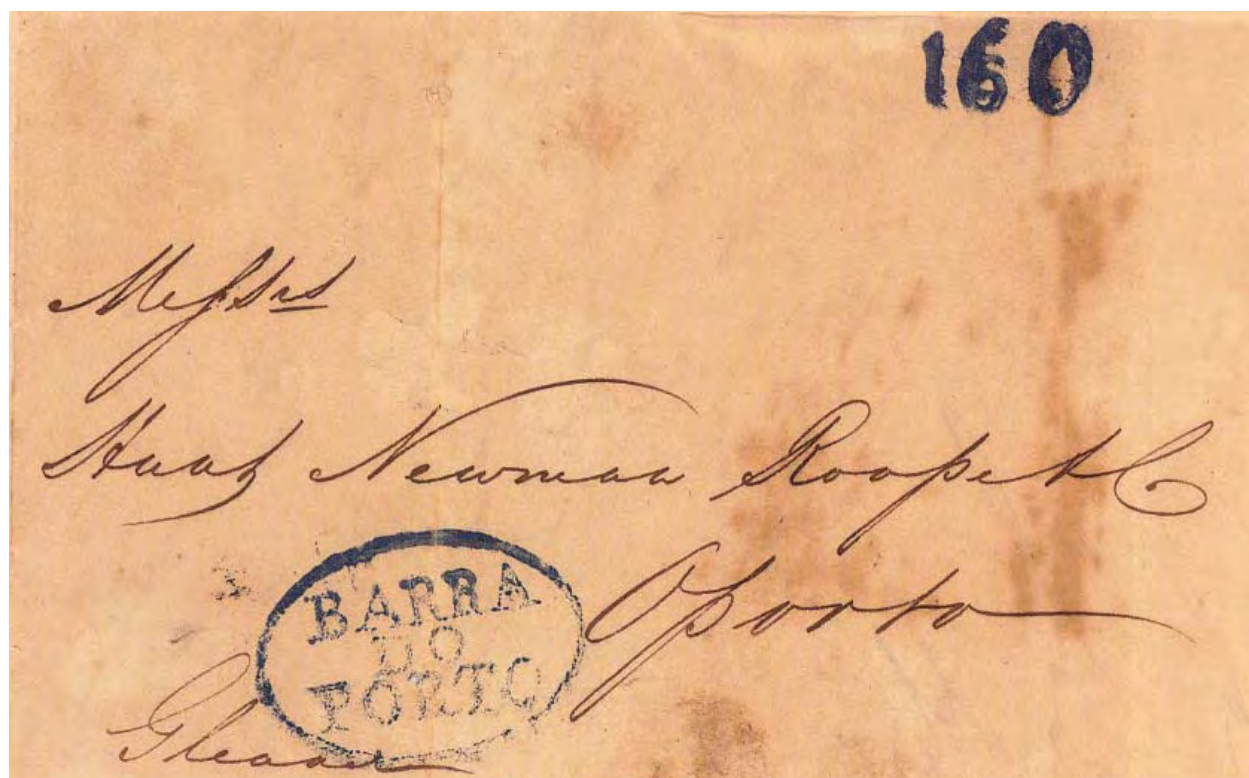 160
Messrs
Hunt Newman Roope & Co
Oporto
BARRA
DO
PORTO